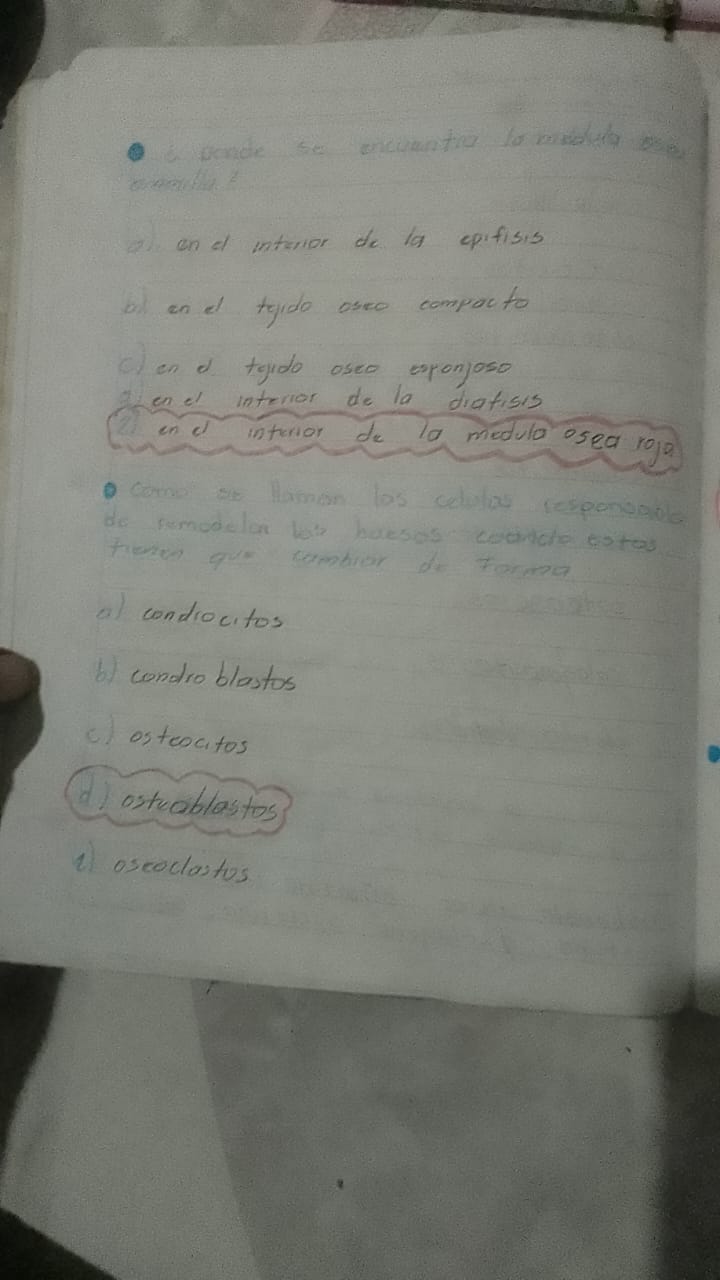 ¿ Donde se encuentra la medula osea
amarilla?
a) en el interior de la epifisis
b) en el tejido oseo compacto
c) en el tejido oseo esponjoso
d) en el interior de la diafisis
e) en el interior de la medula osea roja
como se llaman las celulas responsable
de remodelar los huesos cuando estos
tienen que cambiar de forma
a) condrocitos
b) condroblastos
c) osteocitos
d) osteoblastos
e) oseoclastos